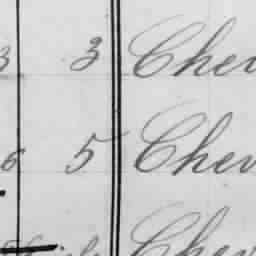 3 3 Chev
6 5 Chev
Chev